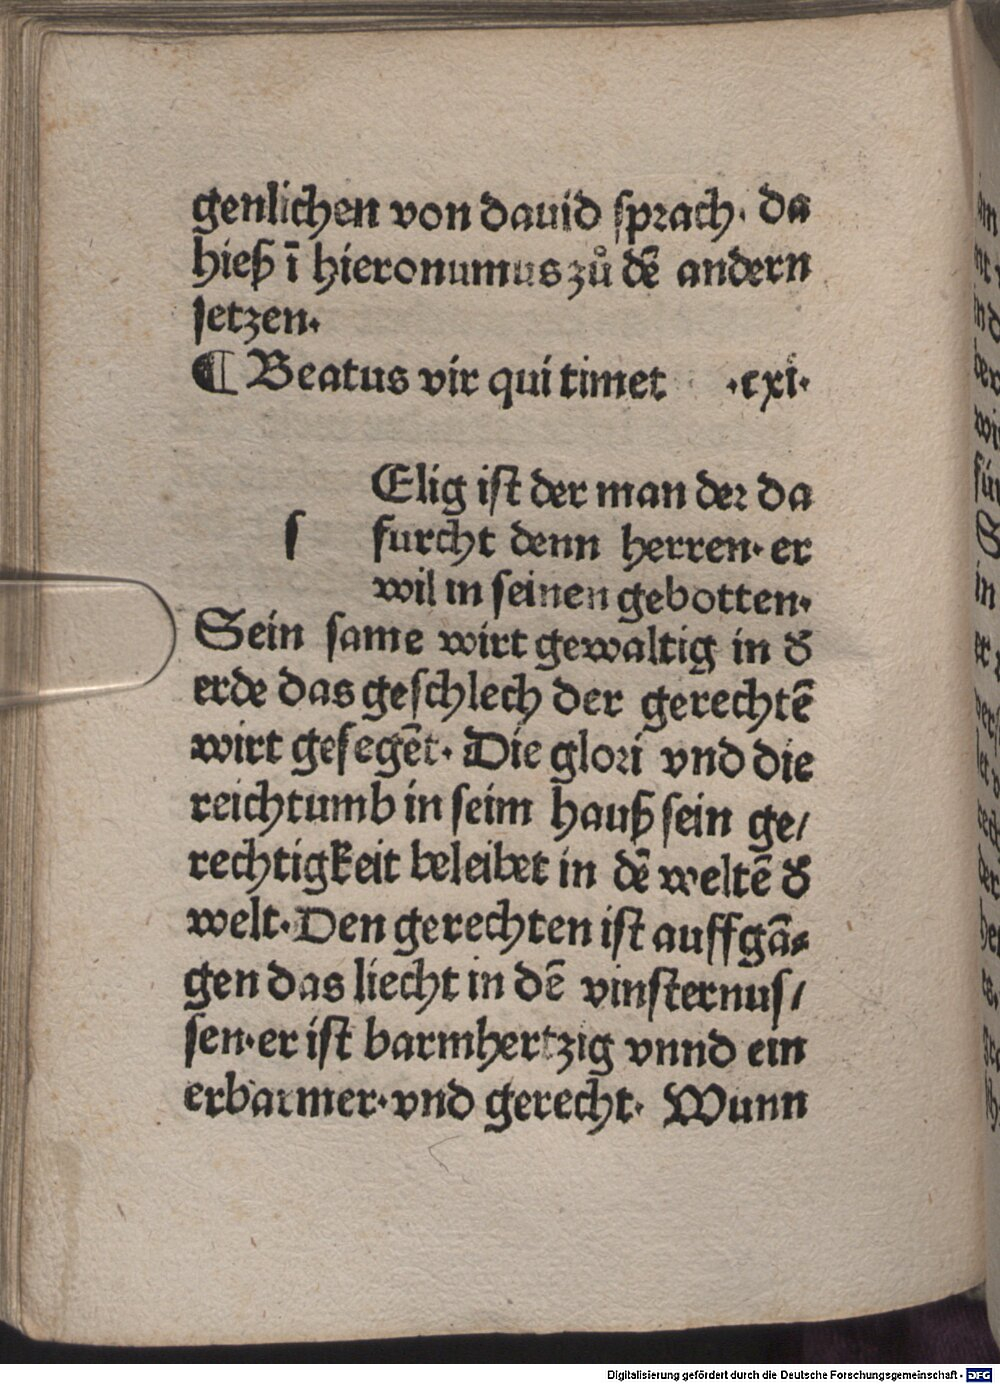 genlichen von dauid sprach. da
hieß ī hieronumus zů dē andern
setzen.
¶ Beatus vir qui timet .cxi.
Elig ist der man der da
s furcht denn herren. er
wil in seinen gebotten.
Sein same wirt gewaltig in d̕
erde das geschlech der gerechtē
wirt gesegēt. Die glori vnd die
reichtumb in seim hauß sein ge/
rechtigkeit beleibet in dē weltē d̕
welt. Den gerechten ist auffgā⸗
gen das liecht in dē vinsternus/
sen. er ist barmhertzig vnnd ein
erbarmer. vnd gerecht. Wunn
Digitalisierung gefördert durch die Deutsche Forschungsgemeinschaft - DFG